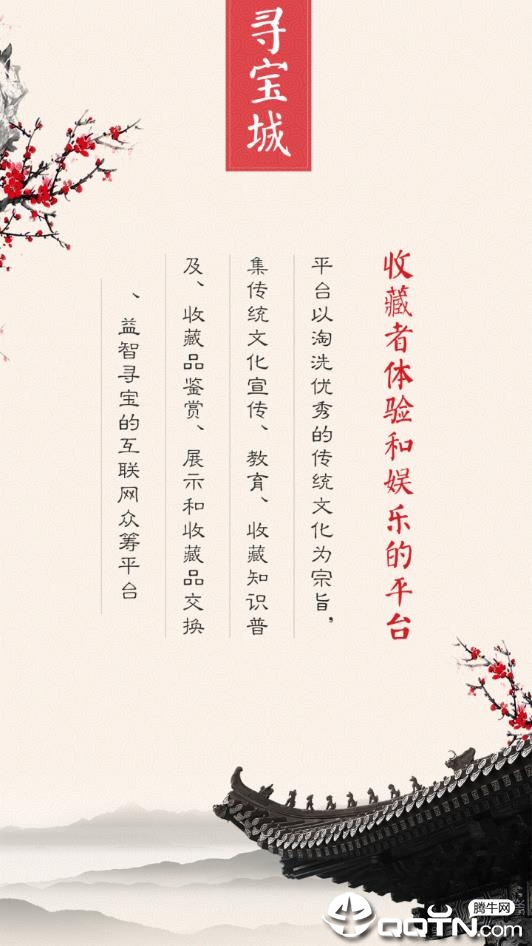 寻宝城
收藏者体验和娱乐的平台
平台以淘洗优秀的传统文化为宗旨，
集传统文化宣传、教育、收藏知识普
及、收藏品鉴赏、展示和收藏品交换
、益智寻宝的互联网众筹平台
腾牛网
QQTN.COM